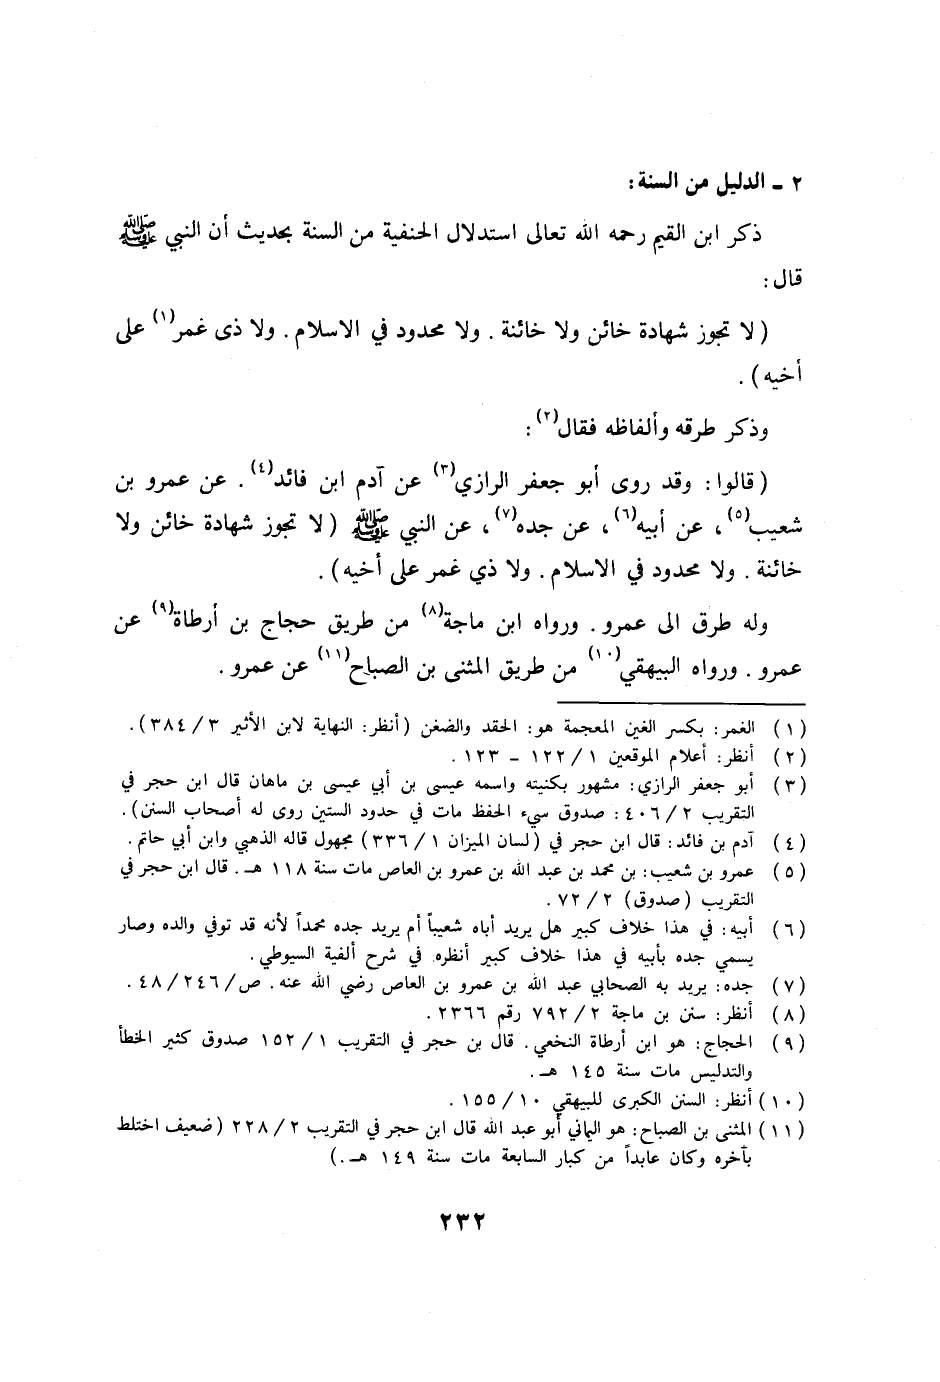 ٢ ـ الدليل من السنة:
ذكر ابن القيم رحمه الله تعالى استدلال الحنفية من السنة بحديث أن النبي ﷺ
قال:
( لا تجوز شهادة خائن ولا خائنة . ولا محدود في الاسلام . ولا ذى غمر(١) على
أخيه ) .
وذكر طرقه وألفاظه فقال(٢) :
( قالوا : وقد روى أبو جعفر الرازي(٣) عن آدم ابن فائد(٤) . عن عمرو بن
شعيب(٥) ، عن أبيه(٦) ، عن جده(٧) ، عن النبي ﷺ ( لا تجوز شهادة خائن ولا
خائنة . ولا محدود في الاسلام . ولا ذي غمر على أخيه ) .
وله طرق الى عمرو . ورواه ابن ماجة(٨) من طريق حجاج بن أرطاة(٩) عن
عمرو . ورواه البيهقي(١٠) من طريق المثنى بن الصباح(١١) عن عمرو .
(١) الغمر: بكسر الغين المعجمة هو: الحقد والضغن (أنظر: النهاية لابن الأثير ٣/ ٣٨٤) .
(٢) أنظر: أعلام الموقعين ١/ ١٢٢ - ١٢٣ .
(٣) أبو جعفر الرازي: مشهور بكنيته واسمه عيسى بن أبي عيسى بن ماهان قال ابن حجر في
التقريب ٢/ ٤٠٦ : صدوق سيء الحفظ مات في حدود الستين روى له أصحاب السنن) .
(٤) آدم بن فائد: قال ابن حجر في (لسان الميزان ١/ ٣٣٦) مجهول قاله الذهبي وابن أبي حاتم .
(٥) عمرو بن شعيب: بن محمد بن عبد الله بن عمرو بن العاص مات سنة ١١٨ هـ . قال ابن حجر في
التقريب (صدوق) ٢/ ٧٢ .
(٦) أبيه: في هذا خلاف كبير هل يريد أباه شعيباً أم يريد جده محمداً لأنه قد توفي والده وصار
يسمي جده بأبيه في هذا خلاف كبير أنظره في شرح ألفية السيوطي .
(٧) جده: يريد به الصحابي عبد الله بن عمرو بن العاص رضي الله عنه. ص/ ٢٤٦/ ٤٨ .
(٨) أنظر: سنن بن ماجة ٢/ ٧٩٢ رقم ٢٣٦٦ .
(٩) الحجاج: هو ابن أرطاة النخعي. قال بن حجر في التقريب ١/ ١٥٢ صدوق كثير الخطأ
والتدليس مات سنة ١٤٥ هـ .
(١٠) أنظر: السنن الكبرى للبيهقي ١٠/ ١٥٥ .
(١١) المثنى بن الصباح: هو اليماني أبو عبد الله قال ابن حجر في التقريب ٢/ ٢٢٨ (ضعيف اختلط
بآخره وكان عابداً من كبار السابعة مات سنة ١٤٩ هـ .)
٢٣٢